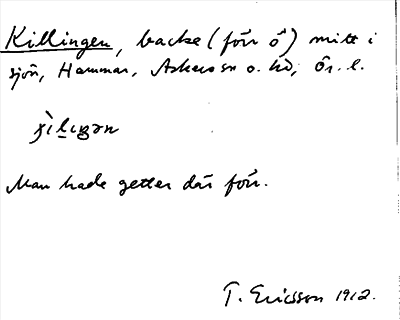 Killingen, backe (förr ö) mitt i
sjön, Hammar, Askers sn o. hd, Ör. l.
Man hade getter där förr.
T. Ericsson 1912.